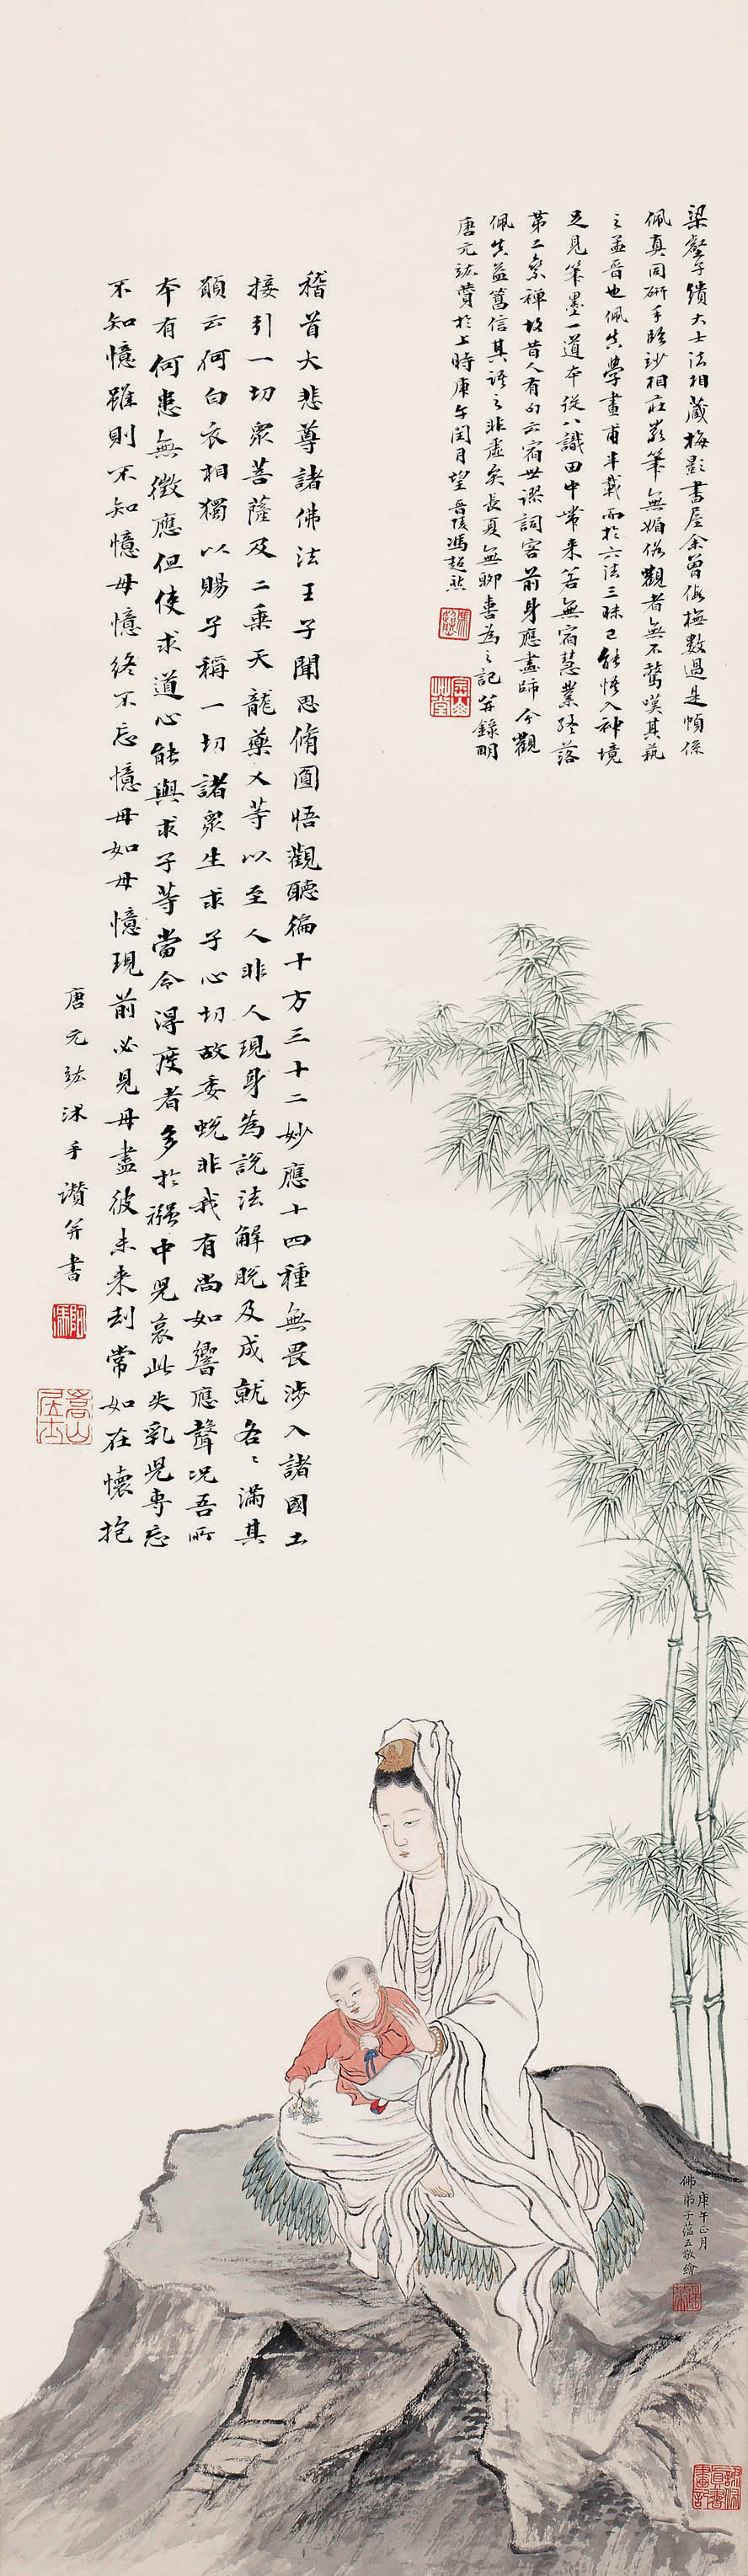 梁壑子繢大士法相藏梅影書屋余曾假橅數過是幀係
佩真同研手臨妙相莊嚴筆無媚俗觀者無不驚嘆其蓺
之孟晉也佩真學畫甫半載而於六法三昧已能悟入神境
足見筆墨一道本從八識田中帶來若無宿慧業經落
第二乘禪故昔人有句云宿世謬詞客前身應畫師今觀
佩真益篤信其語之非虛矣長夏無聊書為之記并錄明
唐元竑贊於上時庚午閏月望晉陵馮超然
稽首大悲尊諸佛法王子聞思脩圓悟觀聽徧十方三十二妙應十四種無畏涉入諸國土
接引一切眾菩薩及二乘天龍藥叉等以至人非人現身為說法解脫及成就各各滿其
願云何白衣相獨以賜子稱一切諸眾生求子心切故委蛻非我有尚如響應聲況吾所
本有何患無徵應但使求道心能與求子等當令得度者多於襁中兒哀此失乳兒專忘
不知憶雖則不知憶母憶終不忘憶母如母憶現前必見母盡彼未來劫常如在懷抱
唐元竑沐手讚并書
嵩山居士
庚午正月
佛弟子蘊玉敬繪